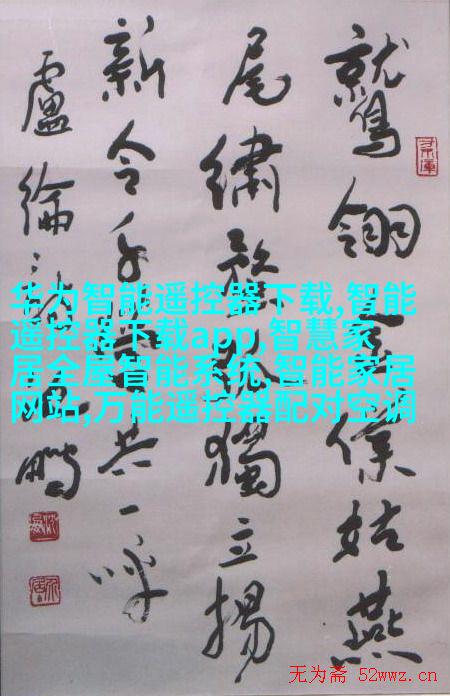 鷲翎金僕姑燕
尾繡蝥弧獨立揚
新令千營共一呼
盧綸詩鵬
华为智能遥控器下载,智能
遥控器下载app 智慧家
居全屋智能系统,智能家居
网站,万能遥控器配对空调
无为斋 52wwz.cn